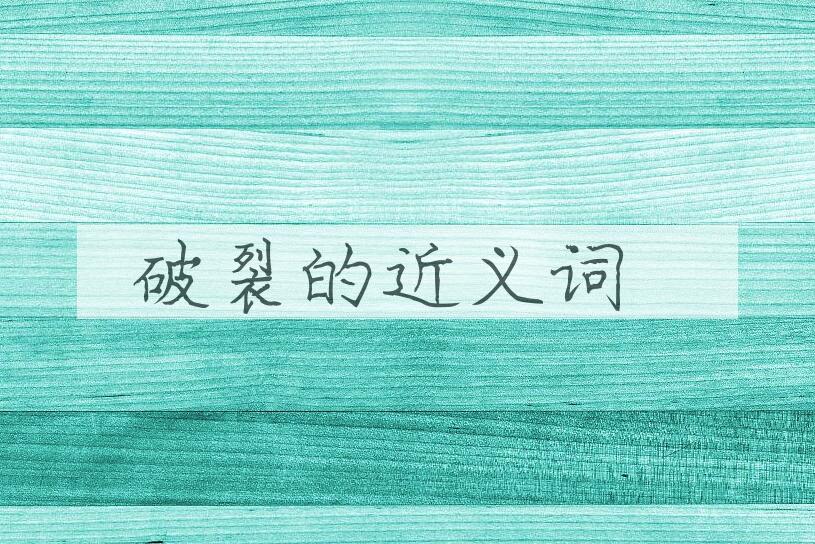 破裂的近义词